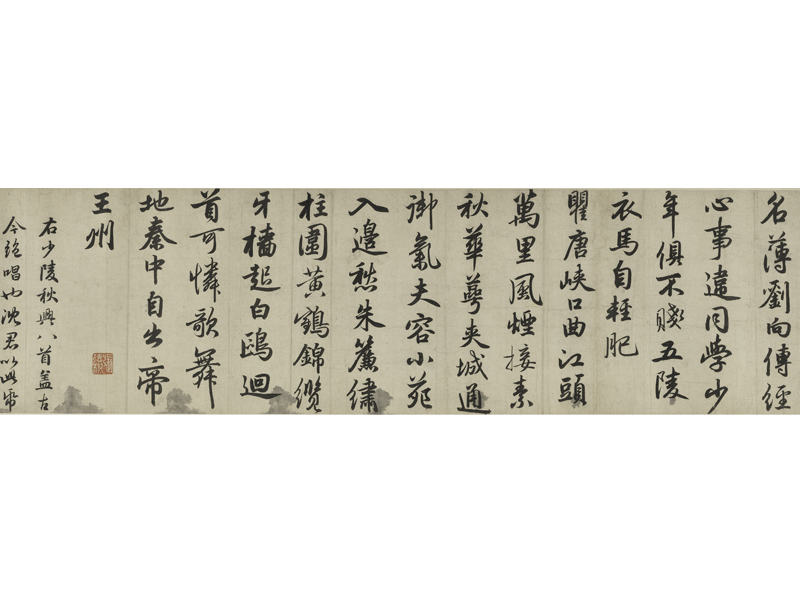 名薄劉向傳經
心事違同學少
年俱不賤五陵
衣馬自輕肥
瞿唐峽口曲江頭
萬里風煙接素
秋華萼夾城通
御氣夫容小苑
入邊愁朱簾繡
柱圍黃鶴錦纜
牙檣起白鷗迴
首可憐歌舞
地秦中自古帝
王州
右少陵秋興八首蓋古
今絕唱也沈君以此帋